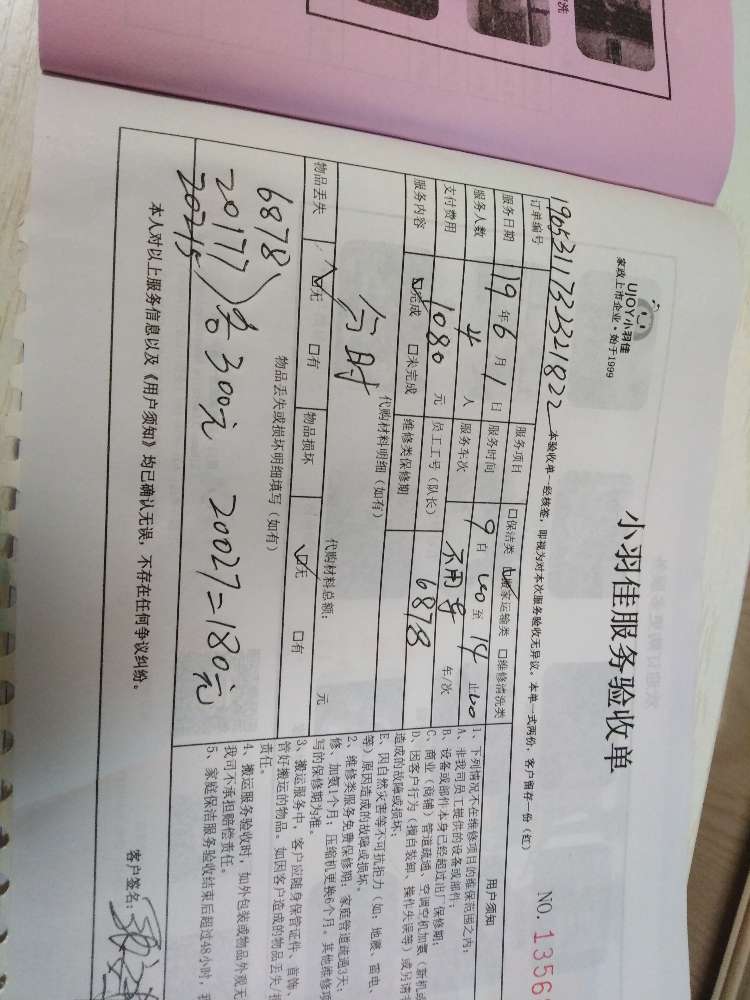 洗
UJOY小羽佳
家政上市企业·始于1999
小羽佳服务验收单
NO. 1356
订单编号 1905311732321822 本验收单一经核签，即视为对本次服务验收无异议。本单一式两份，客户留存一份（红）
服务日期 19年6月1日 服务项目 □保洁类 ☑搬家运输类 □维修清洗类
服务人数 4人 服务时间 9自00至14止00
支付费用 1080元 服务车次 不用车 年/次
员工工号（队长） 6878
服务内容 ☑完成 □未完成 维修类保修期
代购材料明细（如有）
分时
代购材料总额： 元
物品丢失 ☑无 □有 物品损坏 ☑无 □有
物品丢失或损坏明细填写（如有）
6878
20177 各300元 20027=180元
20215
本人对以上服务信息以及《用户须知》均已确认无误，不存在任何争议纠纷。
用户须知
1、下列情况不在维修项目的维保范围之内：
A、非我司员工提供的设备或部件；
B、设备或部件本身已经超过出厂保修期；
C、商业（商铺）管道疏通、空调空机加氨（新机或
D、因客户行为（擅自装卸、操作失误等）或另请
造成的故障或损坏；
E、因自然灾害等不可抗拒力（如：地震、雷电、
等）原因造成的故障或损坏。
2、维修类服务免费保修期：家庭管道疏通3天；
修、加氨1个月；压缩机更换6个月。其他维修项
写的保修期为准。
3、搬运服务中，客户应随身保管证件、首饰、
管好搬运的物品。如因客户造成的物品丢失/
责任。
4、搬运服务验收时，如外包装或物品外观无
我司不承担赔偿责任。
5、家庭保洁服务验收结束后超过48小时，
客户签名：